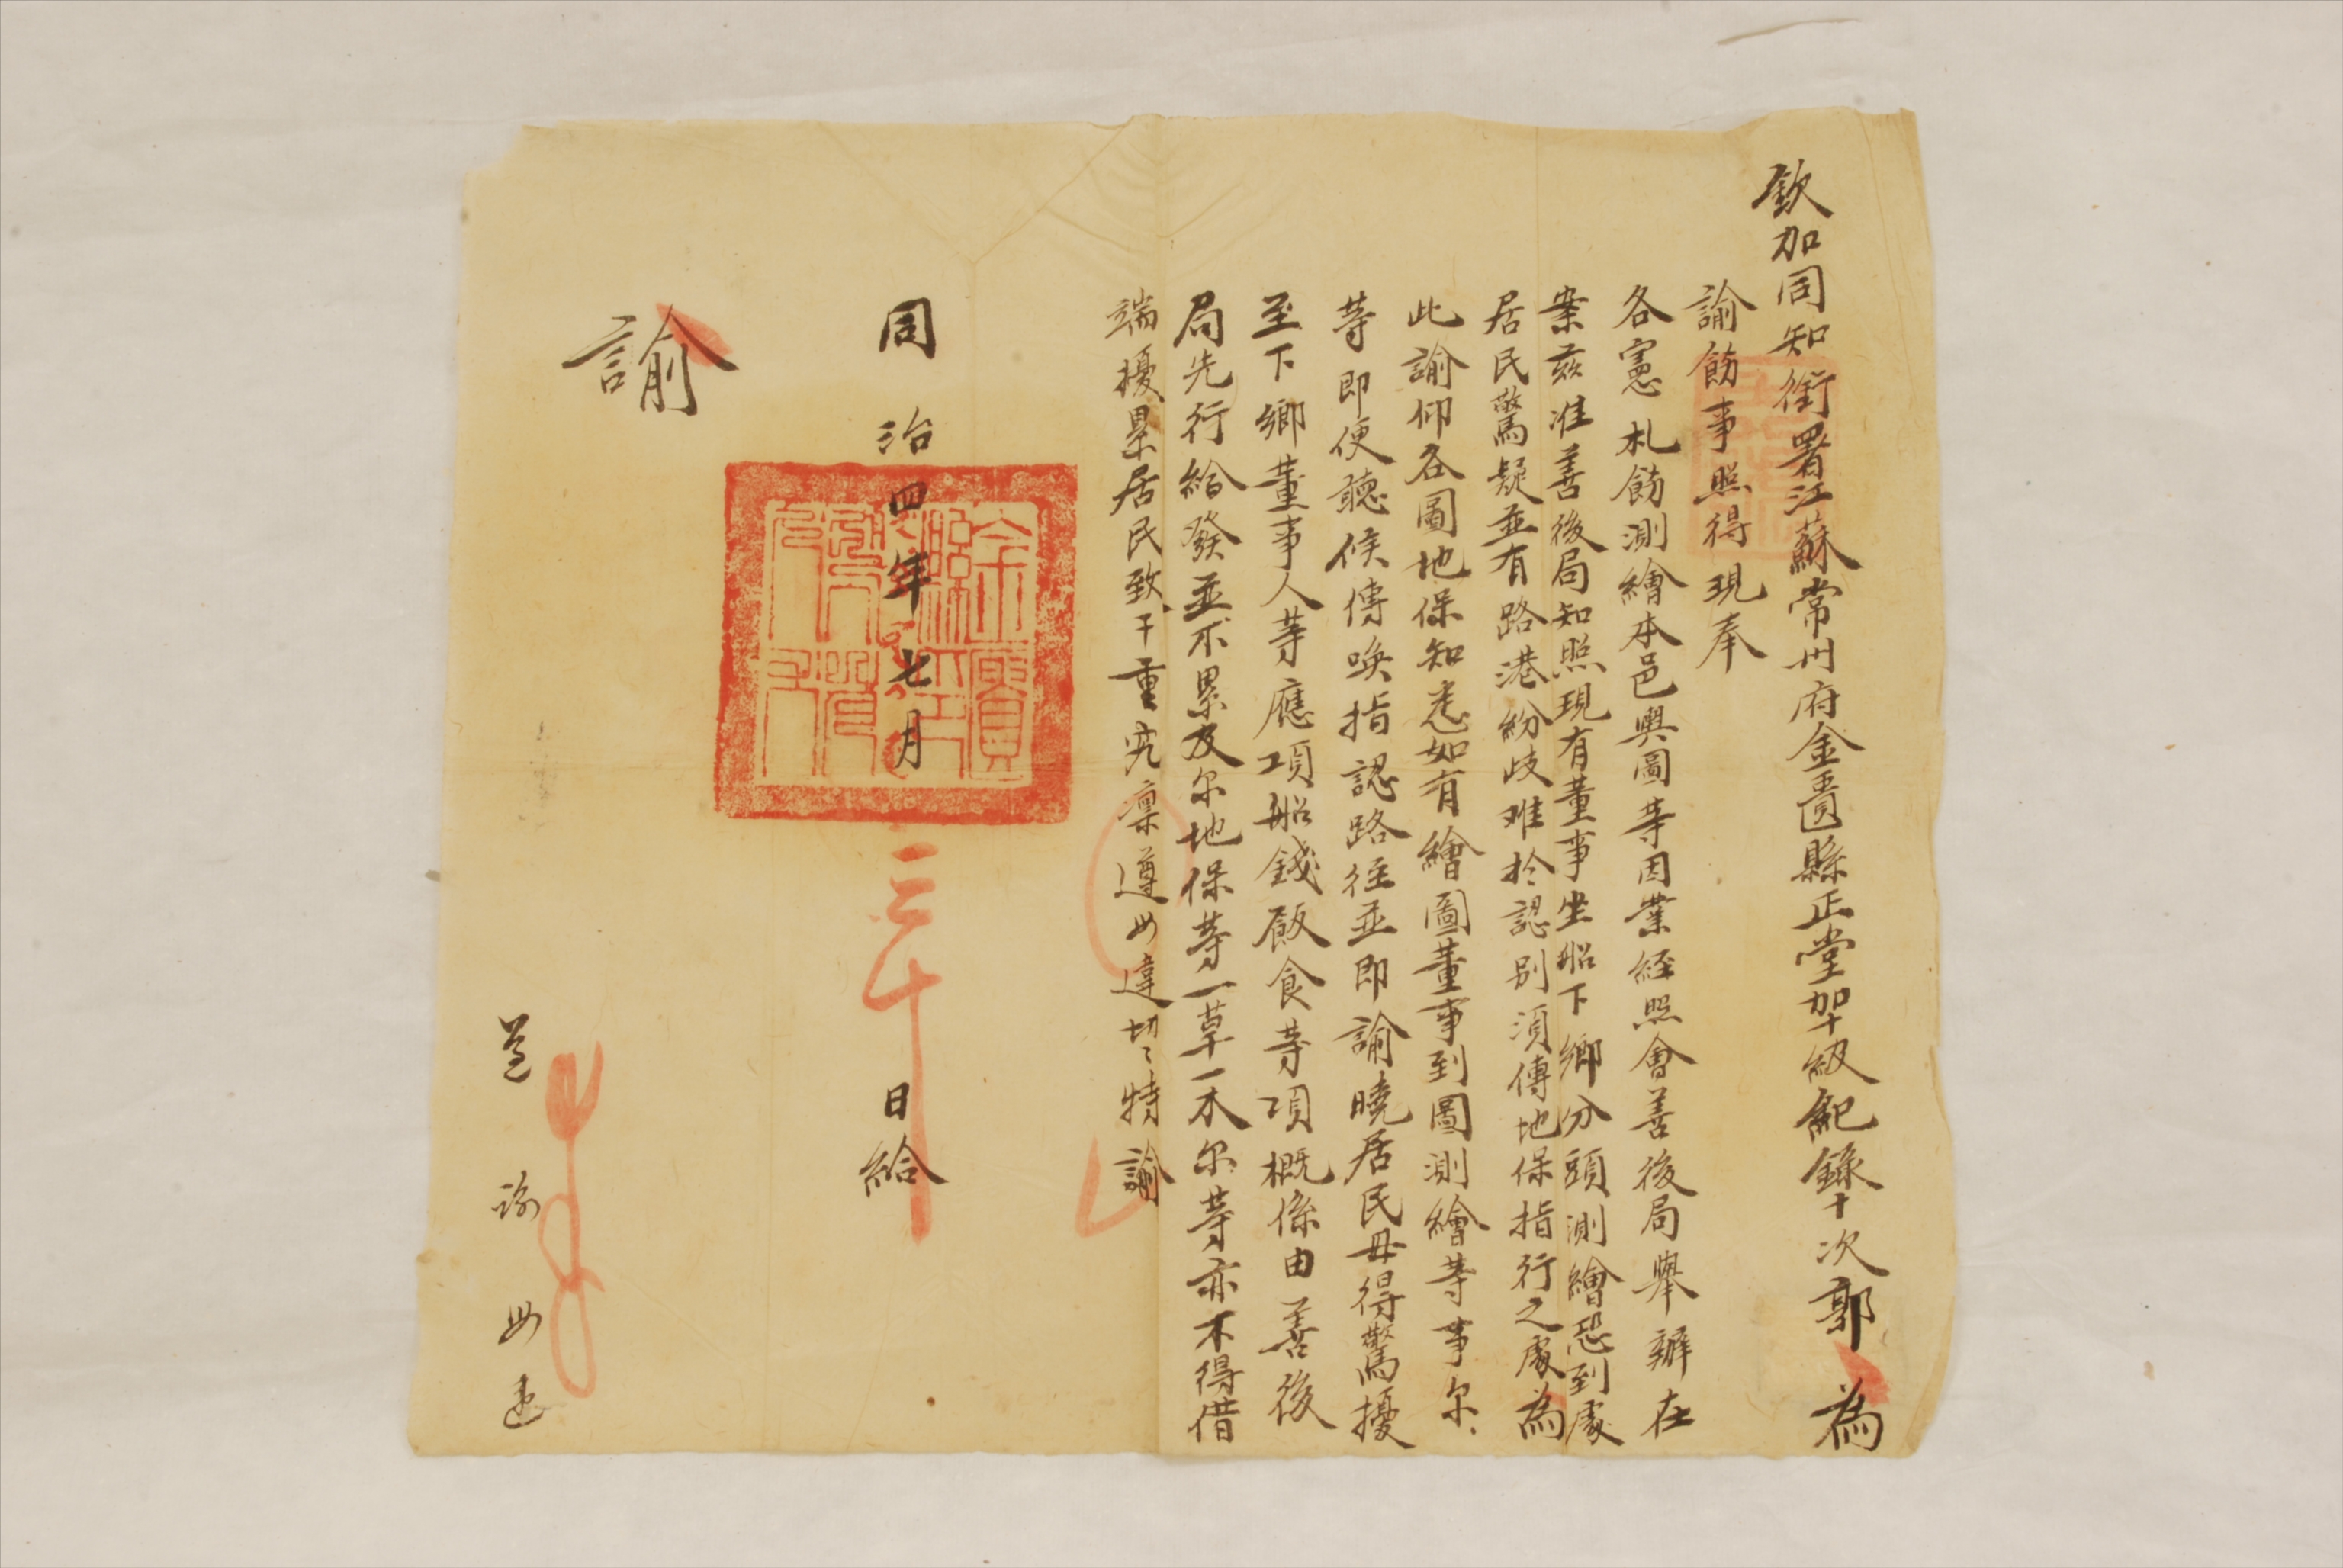 欽加同知銜署江蘇常州府金匱縣正堂加十級紀錄十次郭為
諭飭事照得現奉
各憲札飭測繪本邑輿圖等因業經照會善後局舉辦在
案茲准善後局知照現有董事坐船下鄉分頭測繪恐到處
居民驚疑並有路港紛歧难於認别須傳地保指行之處為
此諭仰各圖地保知悉如有繪圖董事到圖測繪等事尔
等即便聽候傳喚指認路徑並即諭曉居民毋得驚擾
至下鄉董事人等應項船錢飯食等項概係由善後
局先行給發並不累及尔地保等一草一木尔等亦不得借
端擾累居民致干重究凛遵毋違切切特諭
同治四年七月三十日給
諭
遵諭毋違